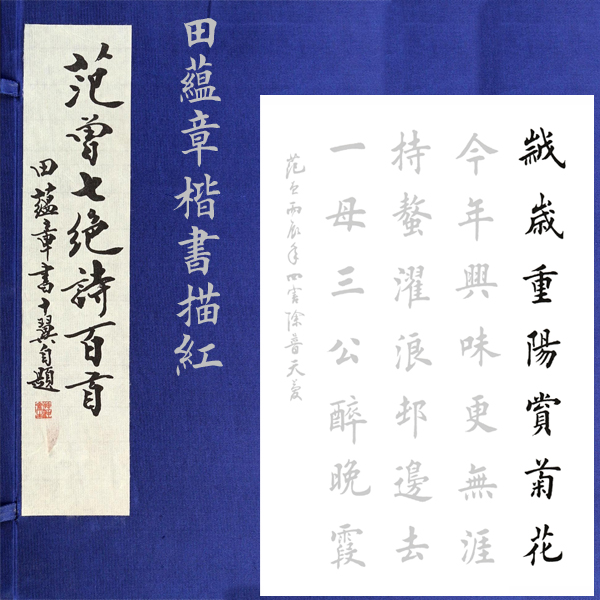 范曾七絕詩百首
田蘊章書十翼自題
田蘊章楷書描紅
歲歲重陽賞菊花
今年興味更無涯
持螯濯浪邨邊去
一母三公醉晚霞
丙辰年四害除普天慶